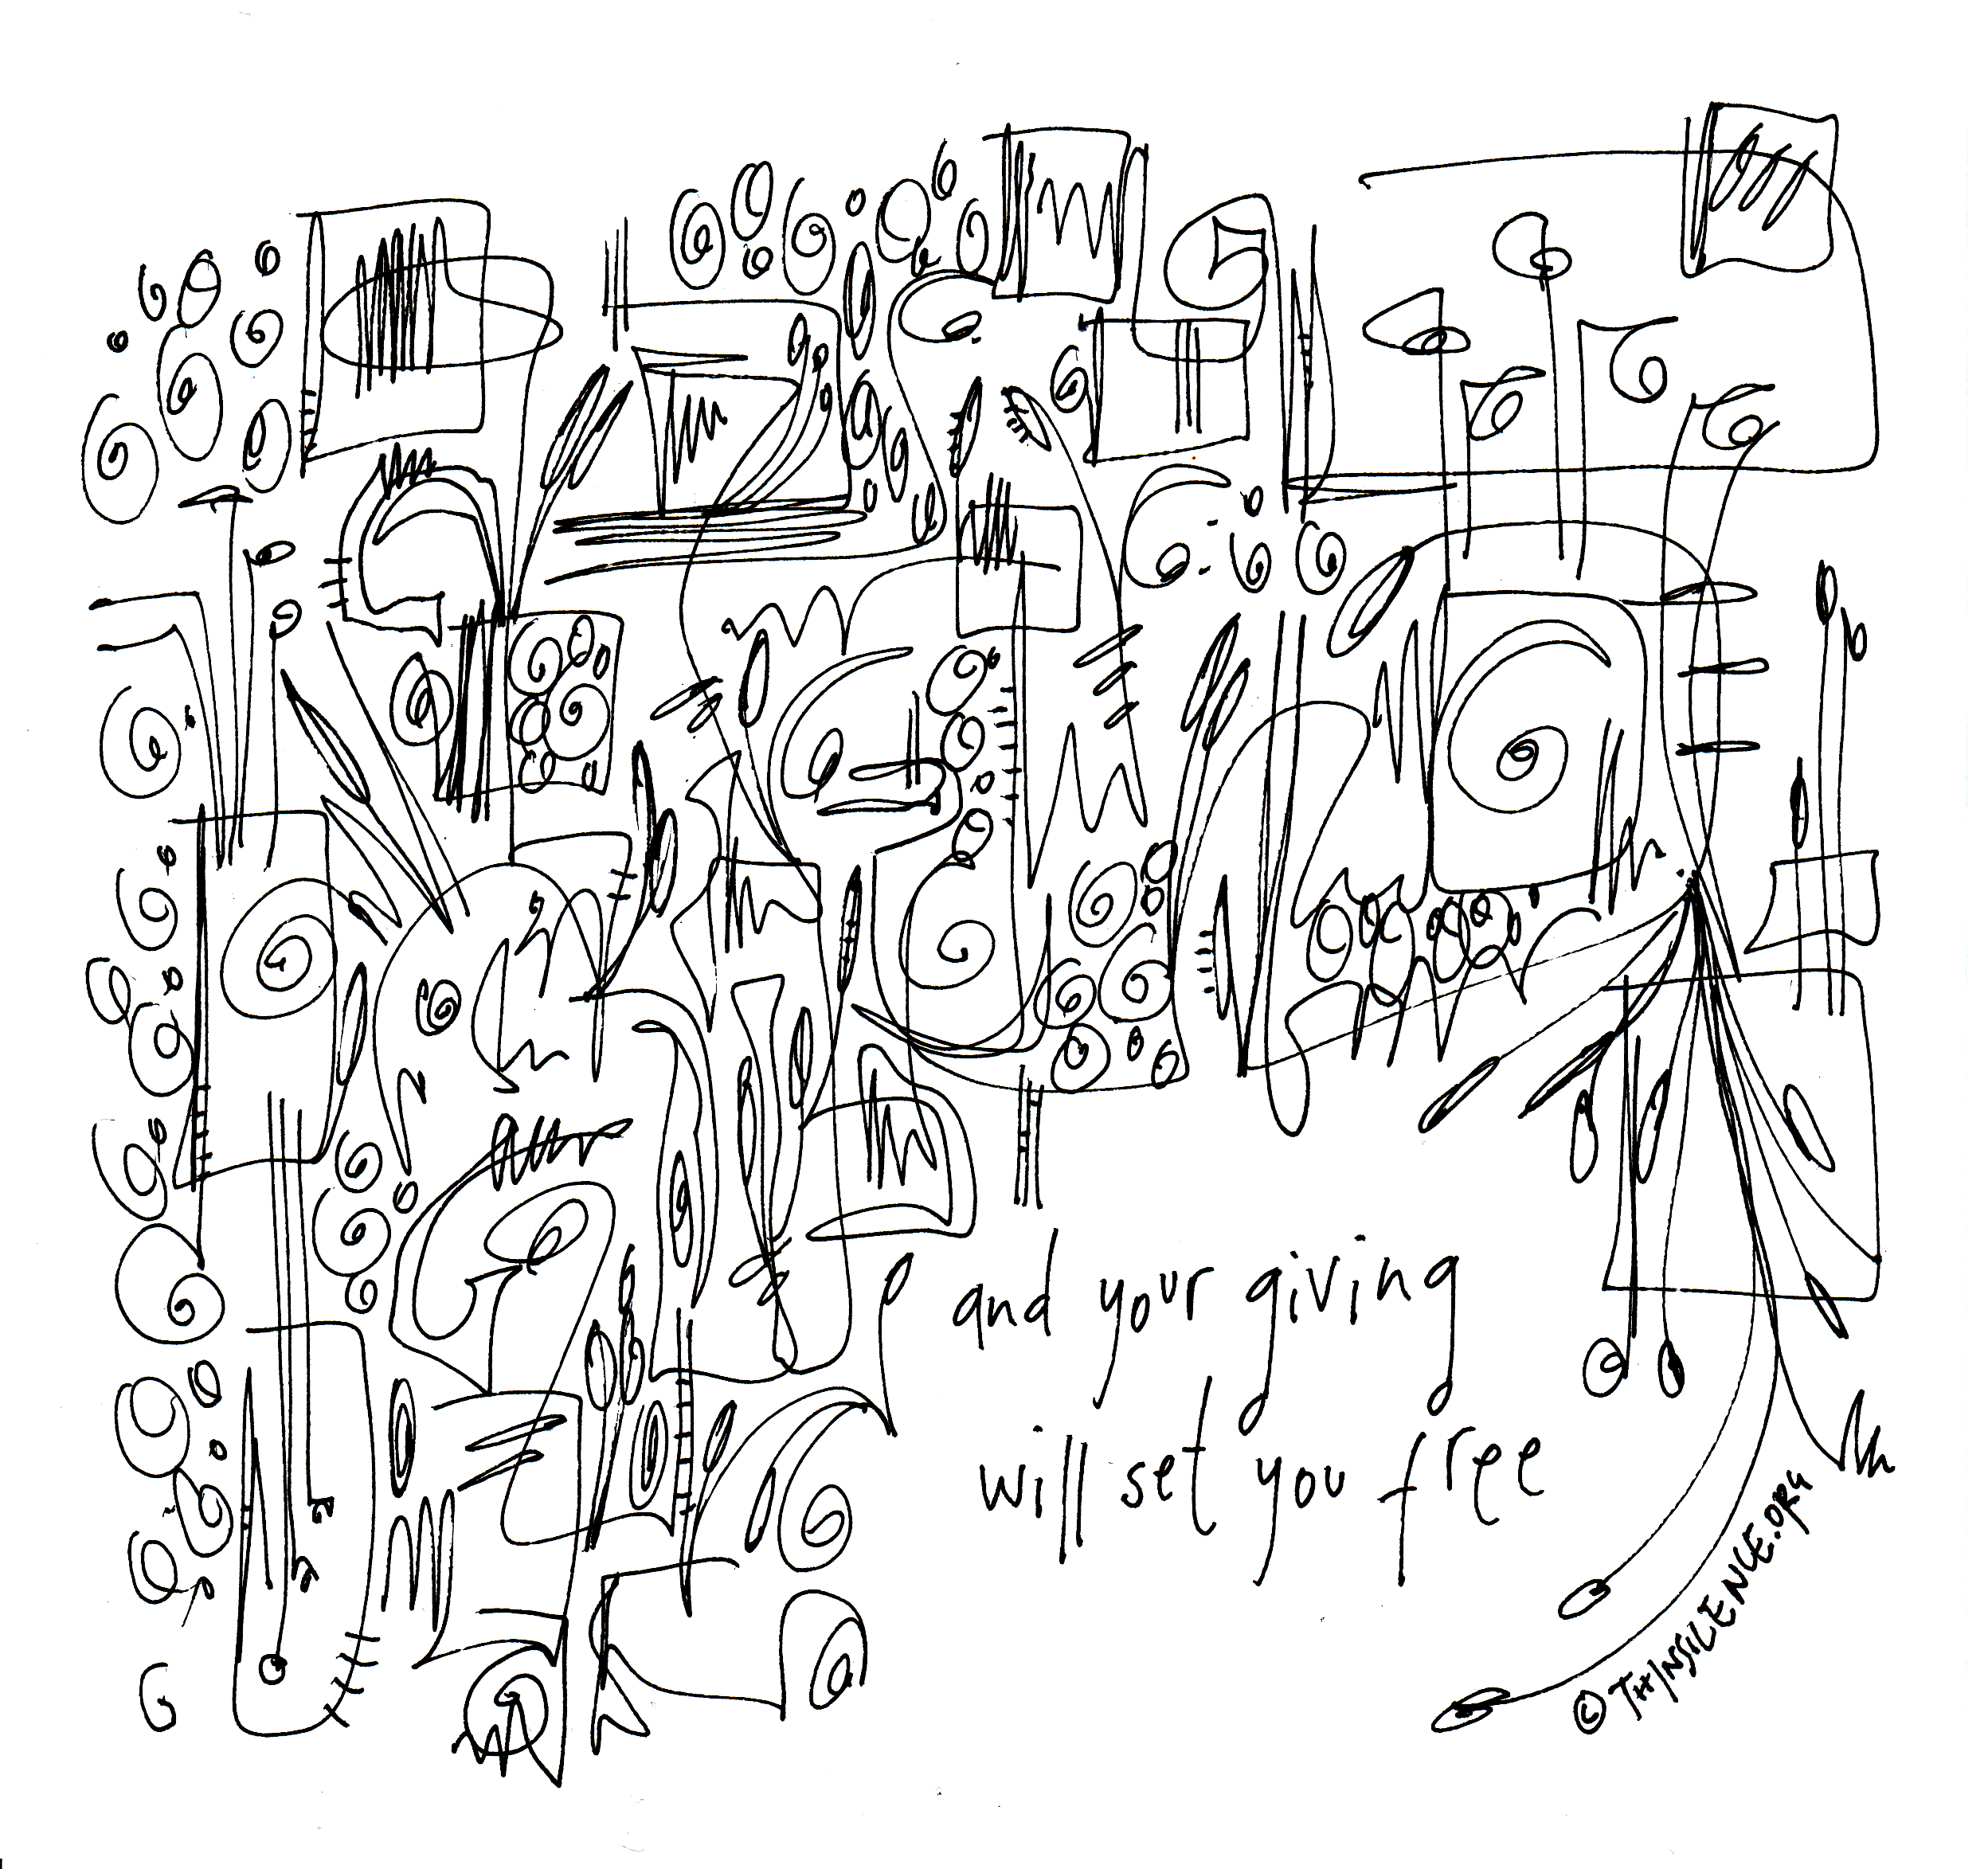 and your giving
will set you free
© THINSILENCE.ORG